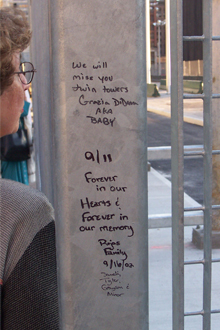 We will
miss you
twin towers
AKA
BABY
9/11
Forever
in our
Hearts &
Forever in
our memory
Family
9/16/02